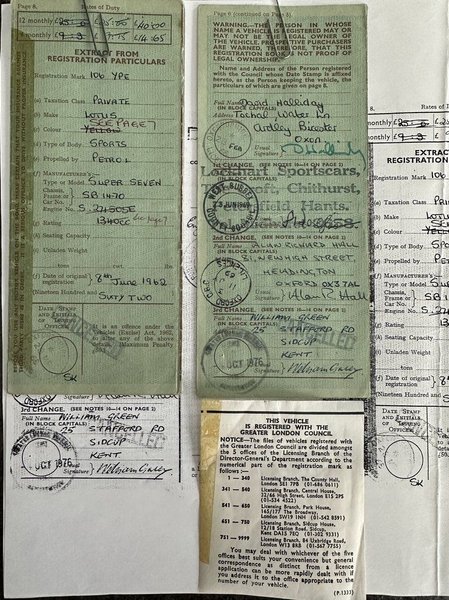 Page 8. Rates of Duty
12 monthly
EXTRACT FROM
REGISTRATION PARTICULARS
Registration Mark 106 YPE
(a) Taxation Class PRIVATE
(b) Make LOTUS
(c) Colour SEE PAGE 7
YELLOW
(d) Type of Body SPORTS
(e) Propelled by PETROL
(f) MANUFACTURER'S—
Type or Model SUPER SEVEN
Chassis
Frame or SB 1470
Car No.
Engine No.
Rating 1340CC
(g) Seating Capacity
(h) Unladen Weight
(j) Date of original registration 8th June 1962
Nineteen Hundred and Sixty Two
DATE STAMP AND INITIALS OF ISSUING OFFICER
It is an offence under the Vehicles (Excise) Act,
to alter any of the above details. (Maximum Penalty
Page 6 (continued on Page 3).
WARNING.—THE PERSON IN WHOSE
NAME A VEHICLE IS REGISTERED MAY OR
MAY NOT BE THE LEGAL OWNER OF
THE VEHICLE. PROSPECTIVE PURCHASERS
ARE WARNED, THEREFORE, THAT THIS
REGISTRATION BOOK IS NOT PROOF OF
LEGAL OWNERSHIP.
Name and Address of the Person registered
with the Council whose Date Stamp is affixed
hereto, as the Person keeping the vehicle, the
particulars of which are given on page 8.
Full Name David Halliday
(IN BLOCK CAPITALS)
Ardley Bicester
Oxon
Usual Signature
1st CHANGE. (SEE NOTES 10—14 ON PAGE 2)
Full Name
(IN BLOCK CAPITALS)
Lockhart Sportscars,
Chithurst,
Hants.
WEST SUSSEX
COUNTY COUNCIL
2nd CHANGE. (SEE NOTES 10—14 ON PAGE 2)
Full Name ALAN RICHARD HALL
(IN BLOCK CAPITALS)
81, NEW HIGH STREET,
HEADINGTON
OXFORD OX3 7AL
Usual Signature Alan R. Hall
3rd CHANGE. (SEE NOTES 10—14 ON PAGE 2)
Full Name WILLIAM GREEN
(IN BLOCK CAPITALS)
25 STAFFORD RD
SIDCUP
KENT
Usual Signature
OCT 1976
3rd CHANGE. (SEE NOTES 10—14 ON PAGE 2)
Full Name WILLIAM GREEN
(IN BLOCK CAPITALS)
25 STAFFORD RD
SIDCUP
KENT
Usual Signature
OCT 1976
THIS VEHICLE
IS REGISTERED WITH THE
GREATER LONDON COUNCIL
NOTICE—The files of vehicles registered with
the Greater London Council are divided amongst
the 5 offices of the Licensing Branch of the
Director-General's Department according to the
numerical part of the registration mark as
follows:—
1— 340 Licensing Branch, The County Hall,
London SE1 7PB (01-686 0611)
341— 540 Licensing Branch, Central House,
32/66 High Street, London E15 2PS
(01-534 4522)
541— 650 Licensing Branch, Park House,
165/177 The Broadway,
London SW19 1NN (01-542 8591)
651— 750 Licensing Branch, Sidcup House,
12/18 Station Road, Sidcup,
Kent DA15 7EQ (01-302 9331)
751—9999 Licensing Branch, 84 Uxbridge Road,
London W13 8RB (01-567 7755)
You may deal with whichever of the five
offices best suits your convenience but general
correspondence as distinct from a licence
application can be more rapidly dealt with if
you address it to the office appropriate to the
number of your vehicle.
(P.1333)
8. Rates of
monthly
EXTRAC
REGISTRATION
Registration Mark 106
(a) Taxation Class PR
(b) Make LOT
(c) Colour
(d) Type of Body
(e) Propelled by PE
(f) MANUFACTURER'S—
Type or Model SU
Chassis
Engine No.
Rating 134
Seating Capacity
Unladen Weight
Date of original registration
Nineteen Hundred and
DATE STAMP AND INITIALS OF ISSUING OFFICER